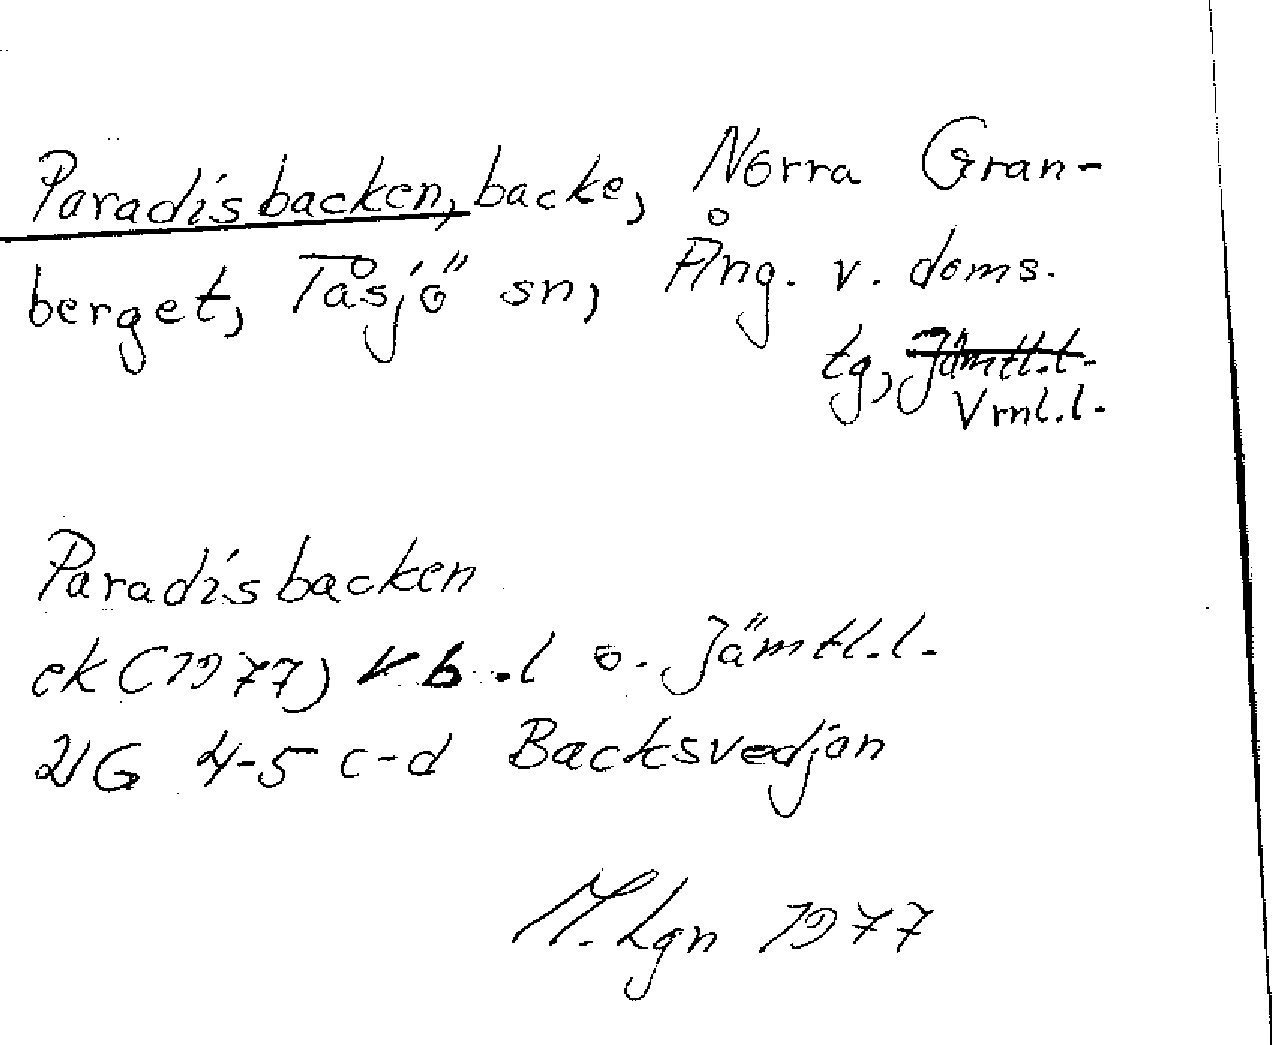 Paradisbacken, backe, Norra Gran-
berget, Tåsjö sn, Ång. v. doms.
tg, Jämtl.l.
Vrnl.l.
Paradisbacken
ek (1977) Vb.l o. Jämtl.l.
21G 4-5 c-d Backsvedjan
M. Lgn 1977